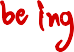 be ing